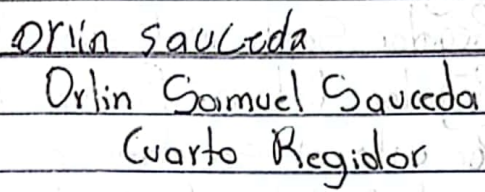 Orlin Sauceda
Orlin Samuel Sauceda
Cuarto Regidor